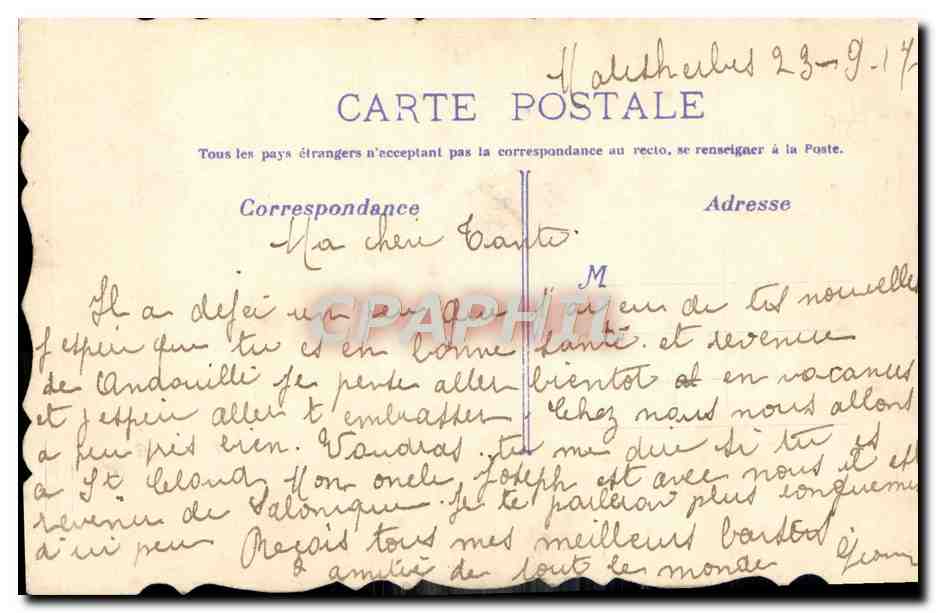 Malesherbes 23-9-17
CARTE POSTALE
Tous les pays étrangers n'acceptant pas la correspondance au recto, se renseigner à la Poste.
Correspondance
Adresse
Ma chère Tante.
M
Il a déjà un peu que j'ai eu de tes nouvelles
j espère que tu es en bonne santé et revenue
de Andouillé je pense aller bientot en vacances
et j espère aller t embrasser. Chez nous nous allons
a peu près bien. Voudras tu me dire si tu es
a St Cloud. Mon oncle Joseph est avec nous il est
revenu de Salonique. Je te parlerai plus longuement
d'ici peu Reçois tous mes meilleurs baisers
& amitié de tout le monde
CPAPHIL